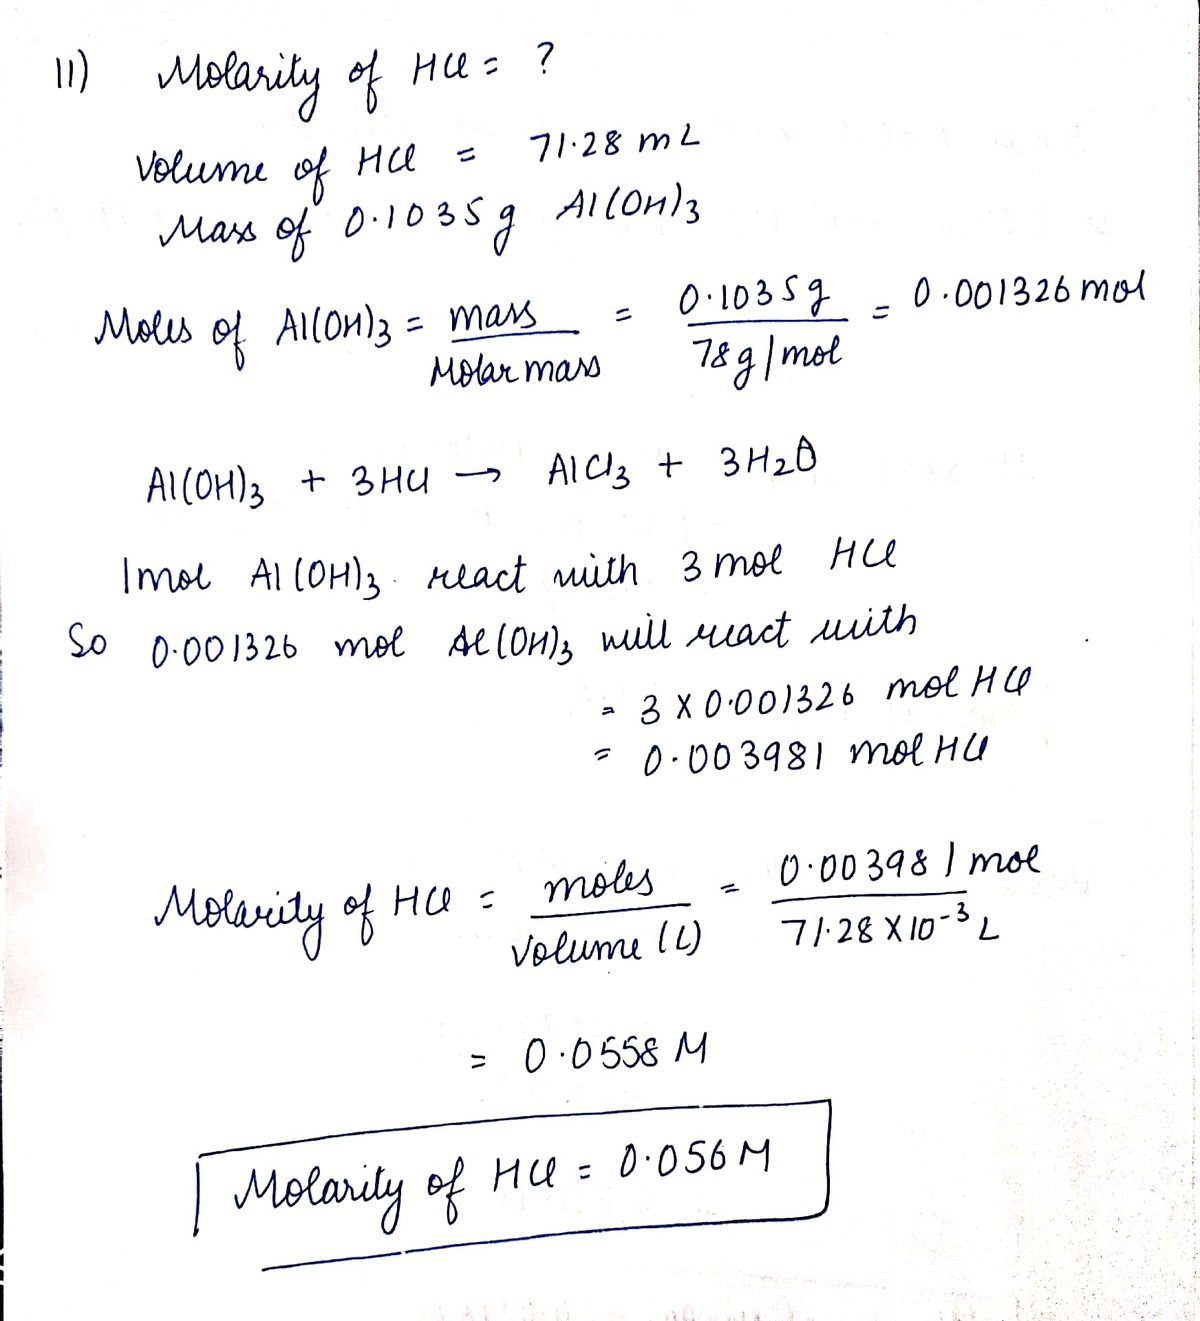 11) Molarity of HCl = ?
Volume of HCl = 71.28 mL
Mass of 0.1035 g Al(OH)3
Moles of Al(OH)3 = mass = 0.1035g = 0.001326 mol
Molar mass 78g/mol
Al(OH)3 + 3HCl → AlCl3 + 3H2O
1mol Al(OH)3 react with 3 mol HCl
So 0.001326 mol Al(OH)3 will react with
= 3 X 0.001326 mol HCl
= 0.003981 mol HCl
Molarity of HCl = moles = 0.003981 mol
Volume (L) 71.28 X 10-3 L
= 0.0558 M
Molarity of HCl = 0.056 M